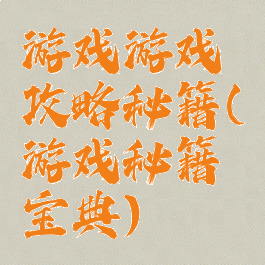 游戏游戏
攻略秘籍(
游戏秘籍
宝典)